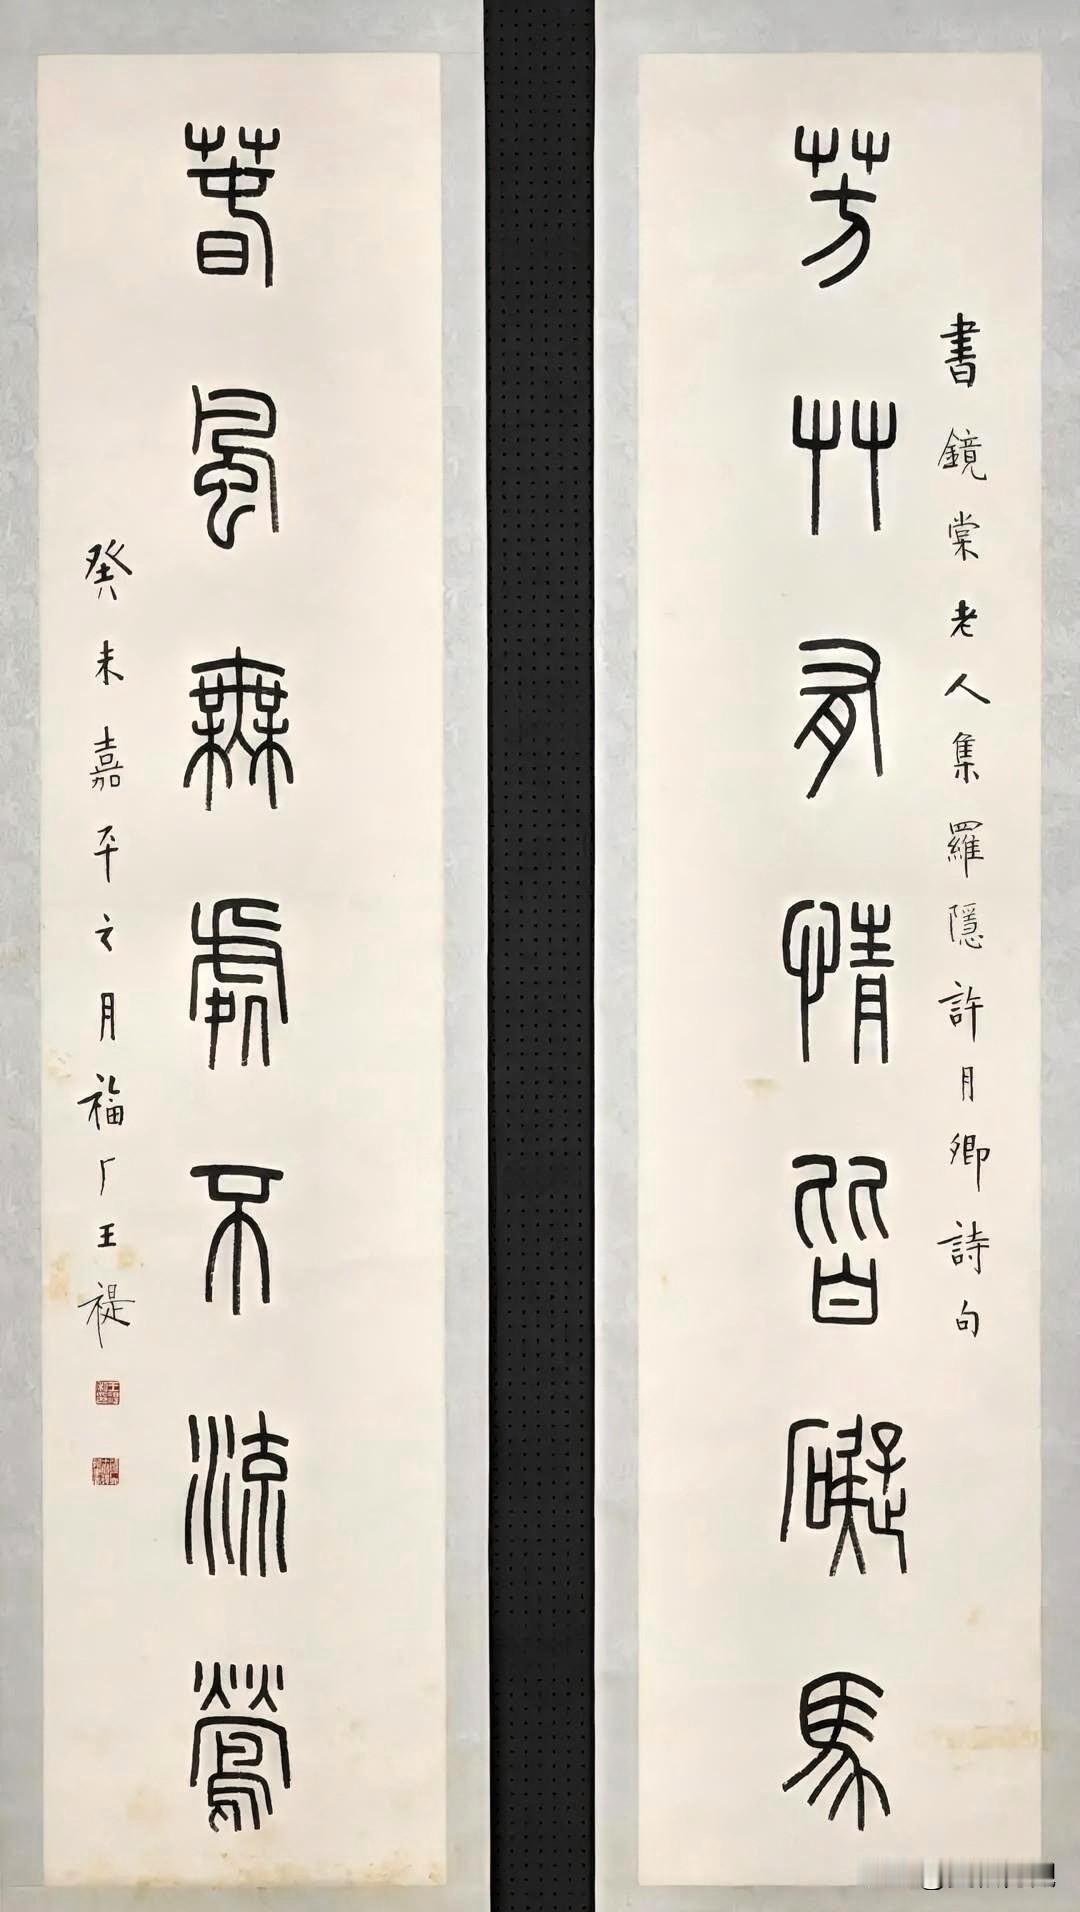 書鏡棠老人集羅隱許月卿詩句
芳艸有情皆礙馬
萅風無處不流鶯
癸未嘉平之月福厂王禔